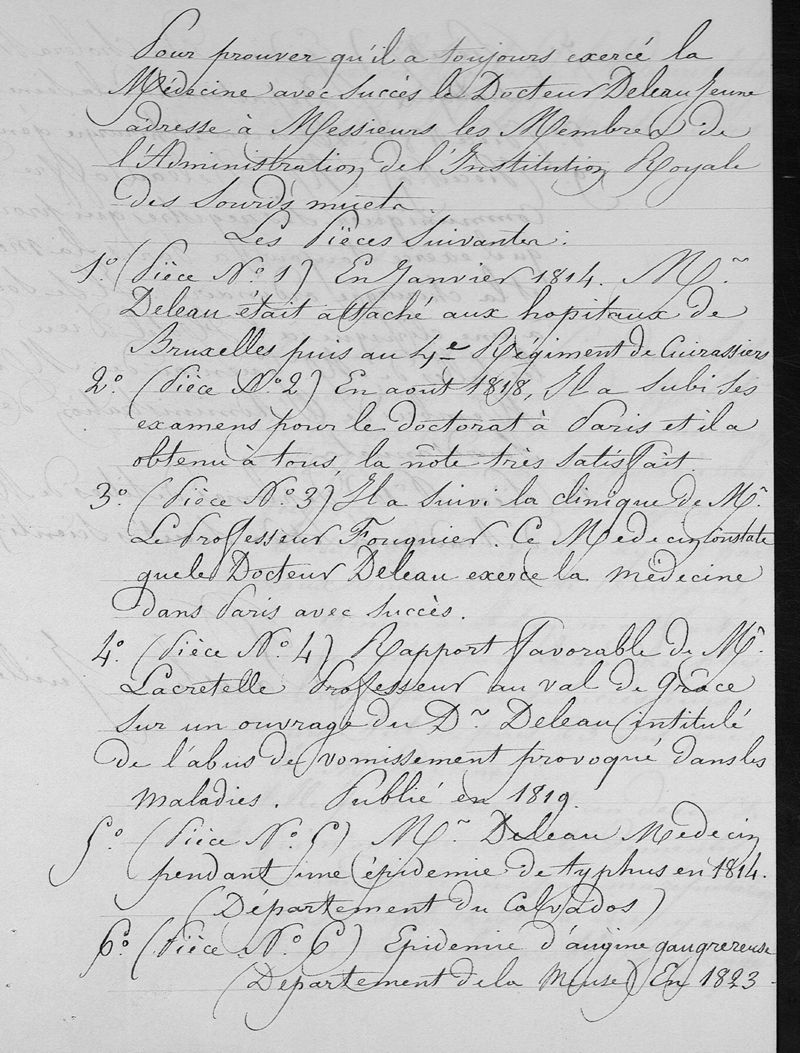 Pour prouver qu'il a toujours exercé la
Médecine avec Succès le Docteur Deleau Jeune
adresse à Messieurs les Membres de
l'Administration de l'Institution Royale
des Sourds muets.
Les Pièces Suivantes:
1º (Pièce Nº 1) En Janvier 1814. Mr
Deleau était attaché aux hopitaux de
Bruxelles puis au 4e Régiment de Cuirassiers
2º. (Pièce Nº 2) En août 1818, Il a subi ses
examens pour le doctorat à Paris et il a
obtenu à tous, la note très satisfait.
3º. (Pièce Nº 3) Il a suivi la clinique de Mr.
Le Professeur Fouquier. Ce Medecin Constate
que le Docteur Deleau exerce la médecine
dans Paris avec Succès.
4º. (Pièce Nº 4) Rapport favorable de Mr.
Lacretelle Professeur au val de Grâce
Sur un ouvrage du Dr Deleau intitulé
de l'abus de vomissement provoqué dans les
maladies. Publié en 1819.
5º. (Pièce Nº 5) Mr Deleau Medecin
pendant une épidemie de typhus en 1814.
(Département du Calvados)
6º. (Pièce Nº 6) Epidemie d'angine gangreneuse
(Departement de la Meuse) En 1823.